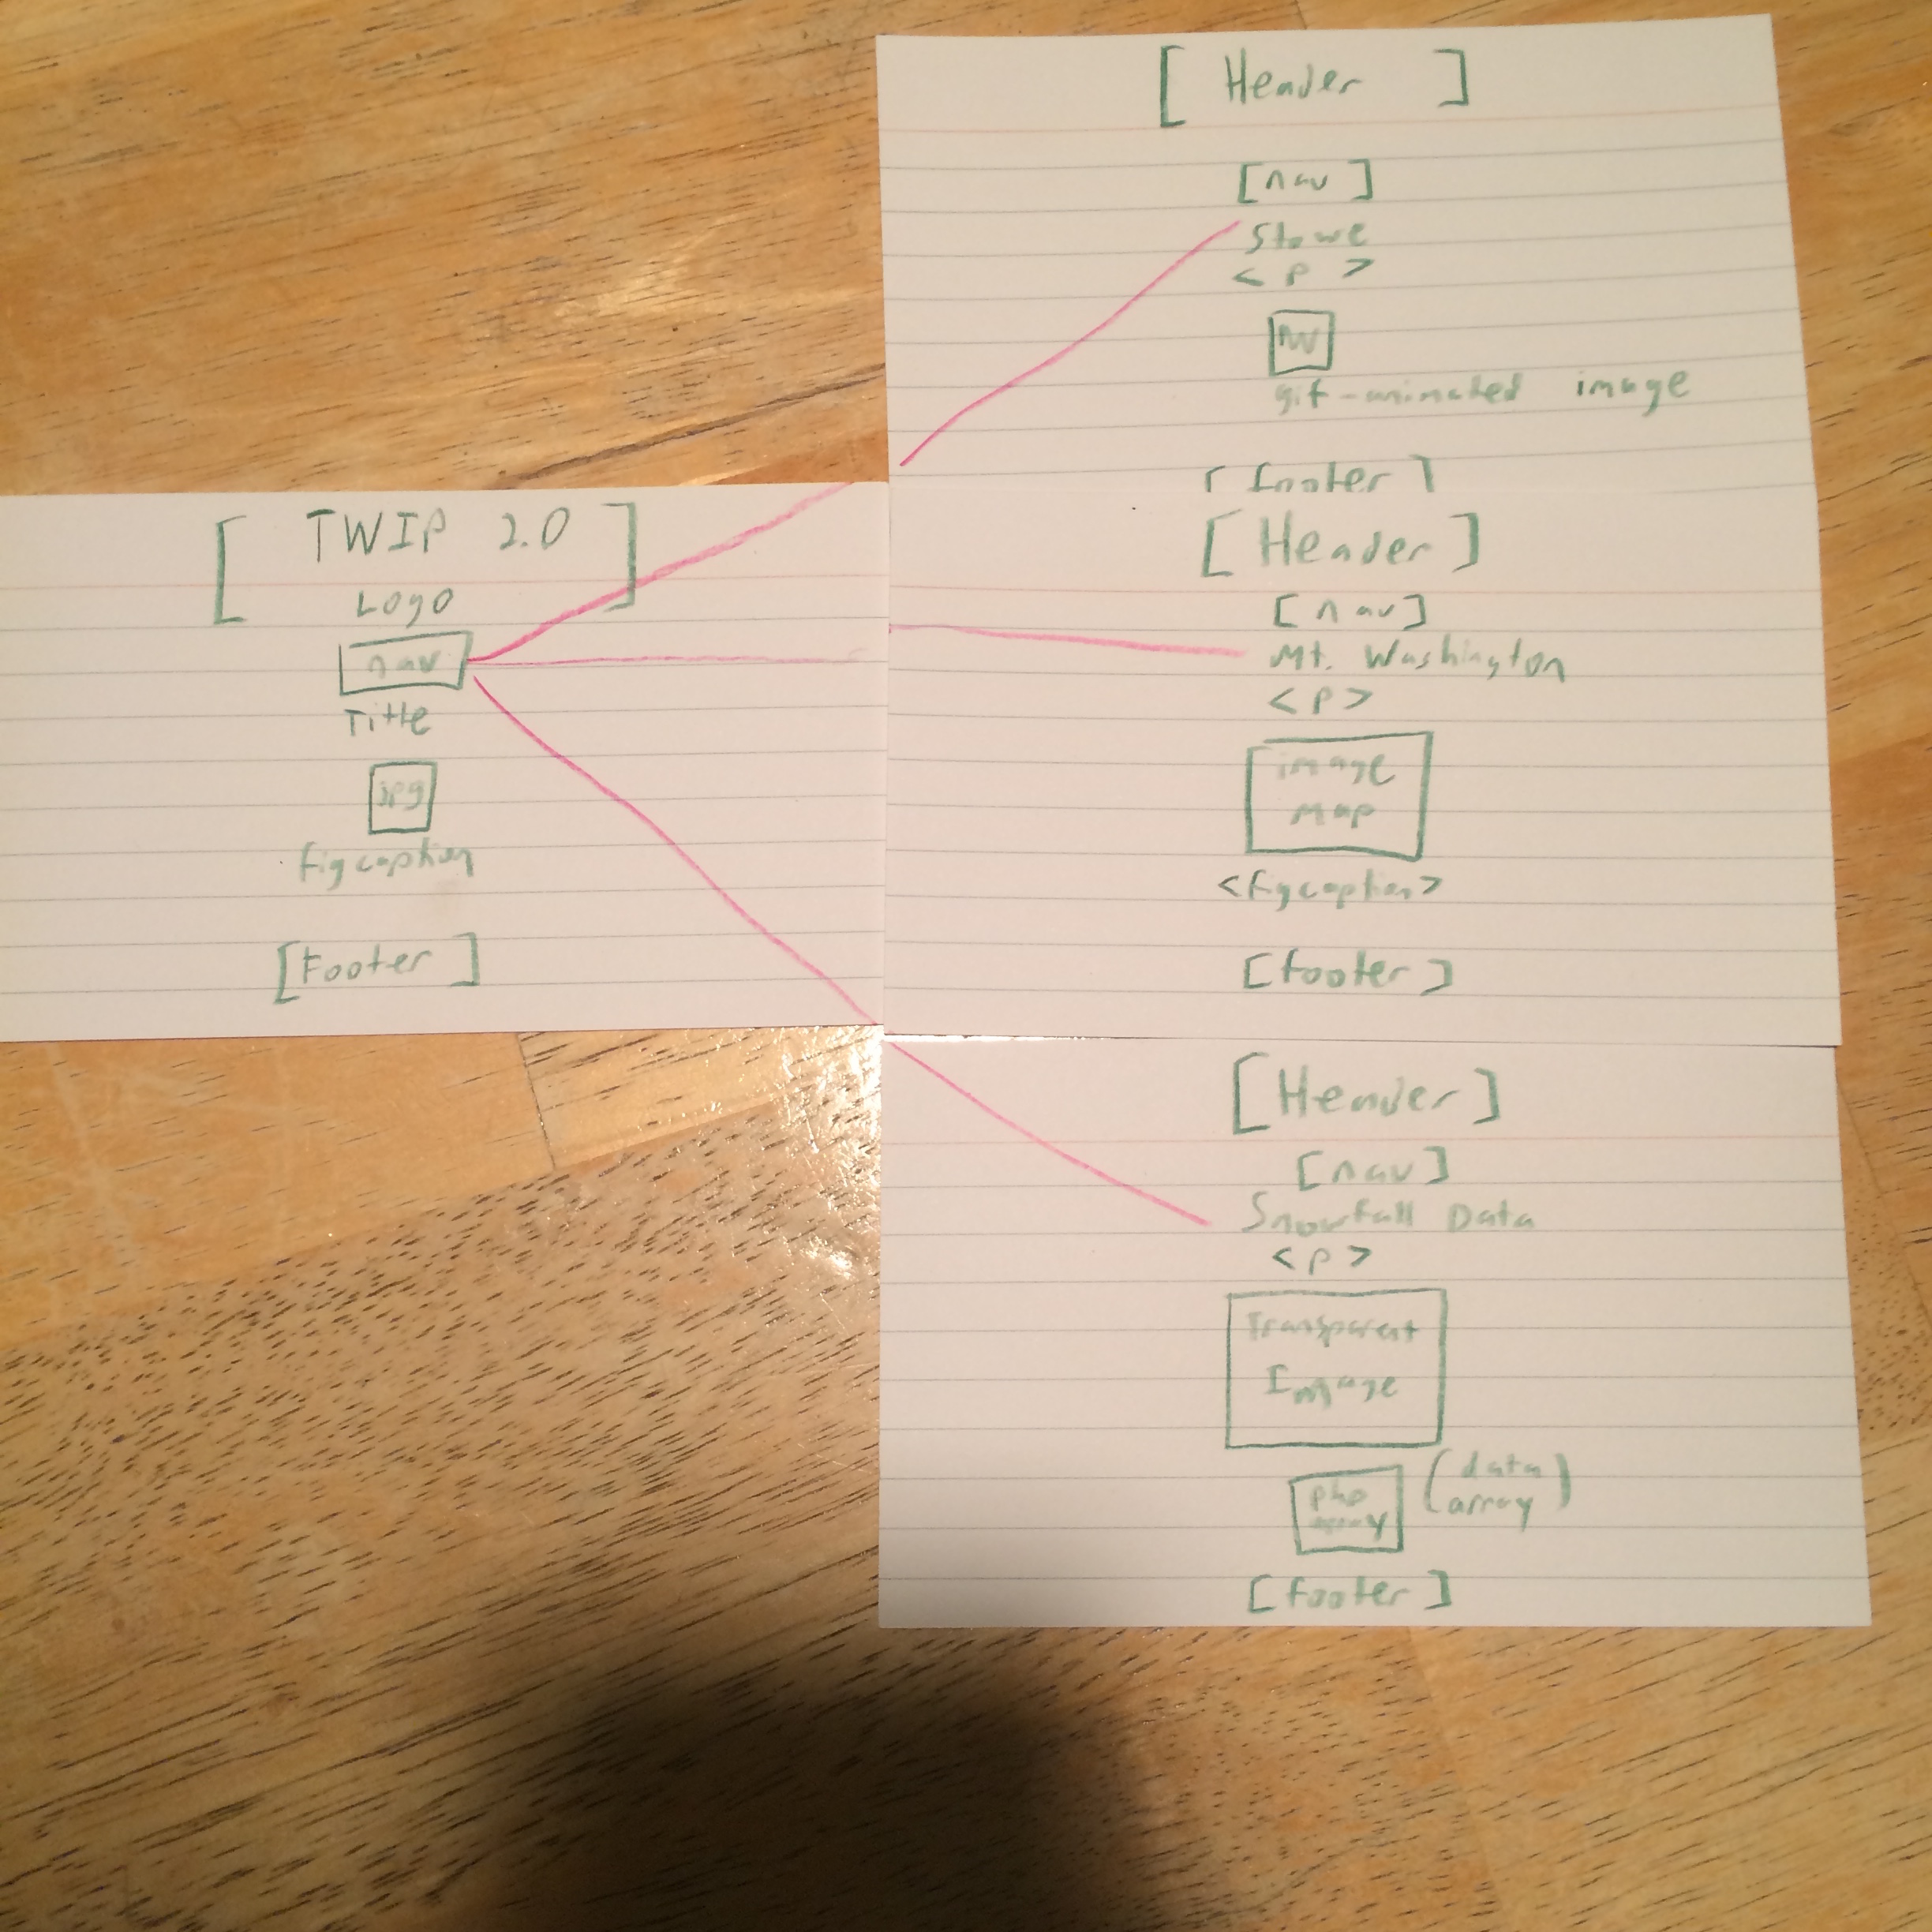 [ TWIP 2.0 ]
Logo
nav
Title
jpg
figcaption
[Footer]
[ Header ]
[nav]
Stowe
< P >
gif-animated image
[footer]
[Header]
[nav]
Mt. Washington
< P >
image
Map
<figcaption>
[footer]
[Header]
[nav]
Snowfall Data
< P >
Transparent
Image
php
array
(data
array)
[footer]